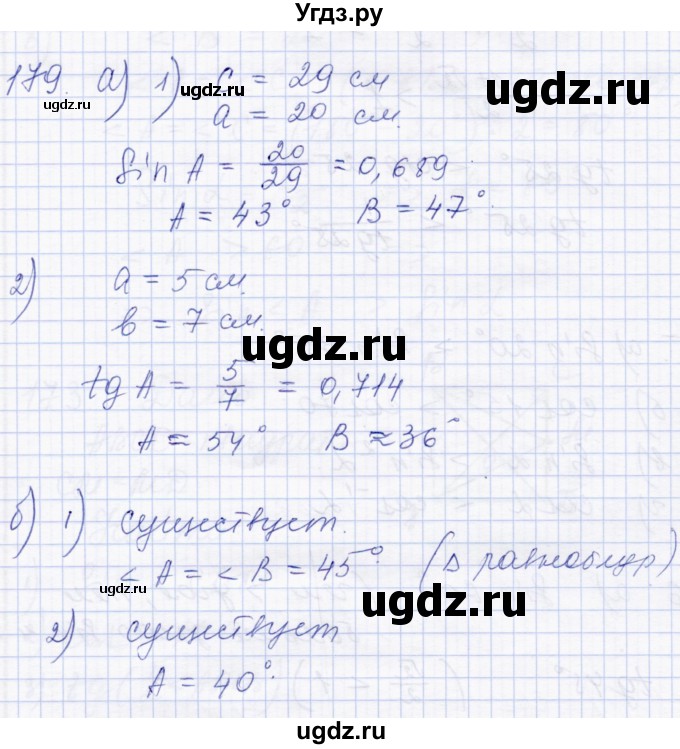 Угдз.ру
179. а) 1) c = 29 см
a = 20 см.
Sin A = 20/29 = 0,689.
A = 43° B = 47°.
2) a = 5 см.
b = 7 см.
tg A = 5/7 = 0,714
A ≈ 54° B ≈ 36°
б) 1) существует.
< A = < B = 45° (Δ равнобедр)
2) существует
A = 40°.
ugdz.ru
ugdz.ru
ugdz.ru
ugdz.ru
ugdz.ru
ugdz.ru
ugdz.ru
ugdz.ru
ugdz.ru